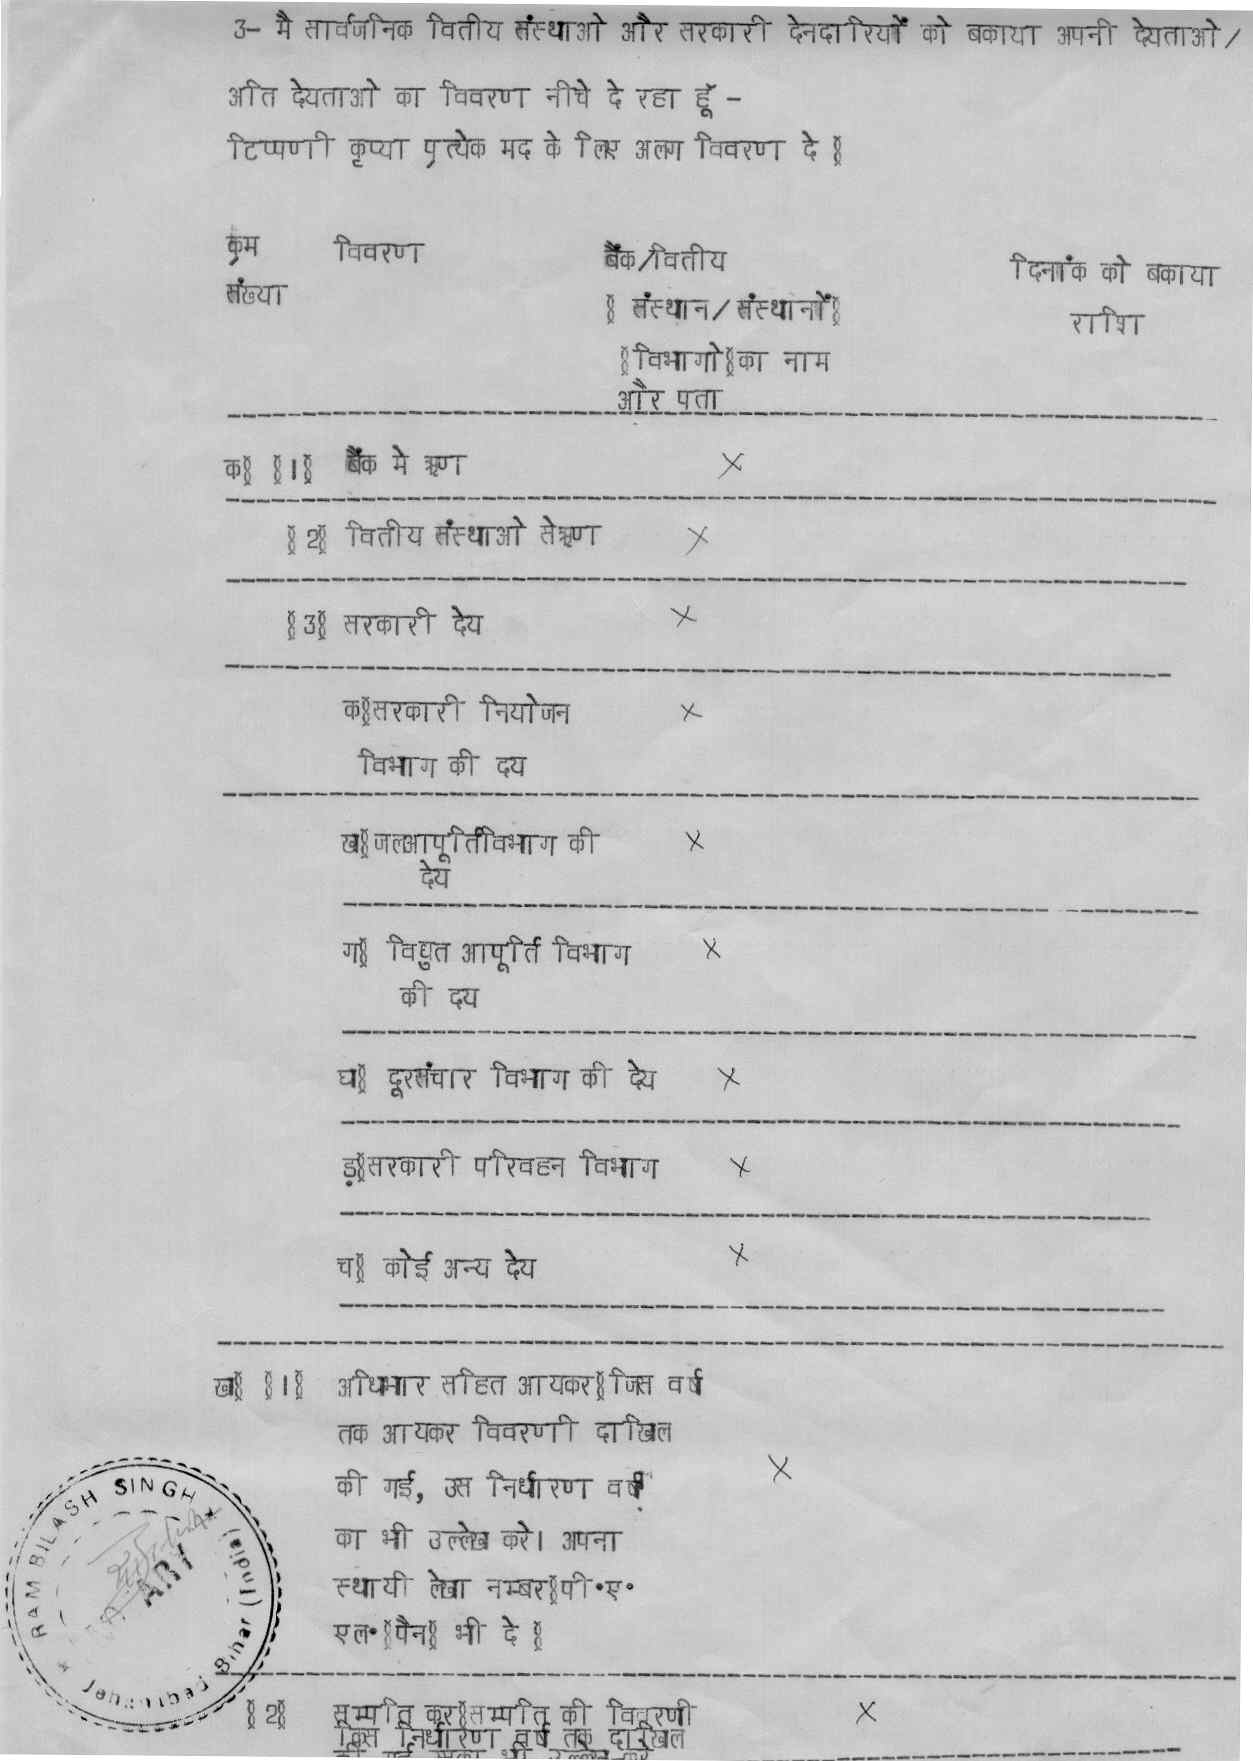 3- मै सार्वजनिक वितीय संस्थाओ और सरकारी देनदारियों को बकाया अपनी देयताओ/
अति देयताओ का विवरण नीचे दे रहा हूँ -
टिप्पणी कृप्या प्रत्येक मद के लिए अलग विवरण दे ‌‌‌‌‌‌‌‌‌‌‌‌‌‌‌‌‌‌‌‌‌‌‌‌‌‌‌‌‌‌‌‌‌‌‌‌‌‌‌‌‌‌‌‌‌‌‌‌‌‌‌‌‌‌‌‌‌‌‌‌‌‌‌‌‌‌‌‌‌‌‌‌‌‌‌‌‌‌‌‌‌‌‌‌‌‌‌‌‌‌‌‌‌‌‌‌‌‌‌‌‌‌‌‌‌‌‌‌‌‌‌‌‌‌‌‌‌‌‌‌‌‌‌‌‌‌‌‌‌‌‌‌‌‌‌‌‌‌‌‌‌‌‌‌‌‌‌‌‌‌‌‌‌‌‌‌‌‌‌‌)
क्रम विवरण बैंक/वितीय दिनांक को बकाया
संख्या (संस्थान/संस्थानों) राशि
(विभागो)का नाम
और पता
क) (1) बैंक मे ऋण X
(2) वितीय संस्थाओ सेऋण X
(3) सरकारी देय X
क)सरकारी नियोजन X
विभाग की दय
ख)जलआपूर्तिविभाग की X
देय
ग) विद्युत आपूर्ति विभाग X
की दय
घ) दूरसंचार विभाग की देय X
ड़)सरकारी परिवहन विभाग X
च) कोई अन्य देय X
ख) (1) अधिभार सहित आयकर(जिस वर्ष
तक आयकर विवरणी दाखिल
की गई, उस निर्धारण वर्ष X
का भी उल्लेख करे। अपना
स्थायी लेखा नम्बर(पी.ए.
एल.(पैन) भी दे )
(2) सम्पति कर(सम्पति की विवरणी X
किस निर्धारण वर्ष तक दाखिल
RAM BILASH SINGH
ARY
Jehanabad Bihar (India)